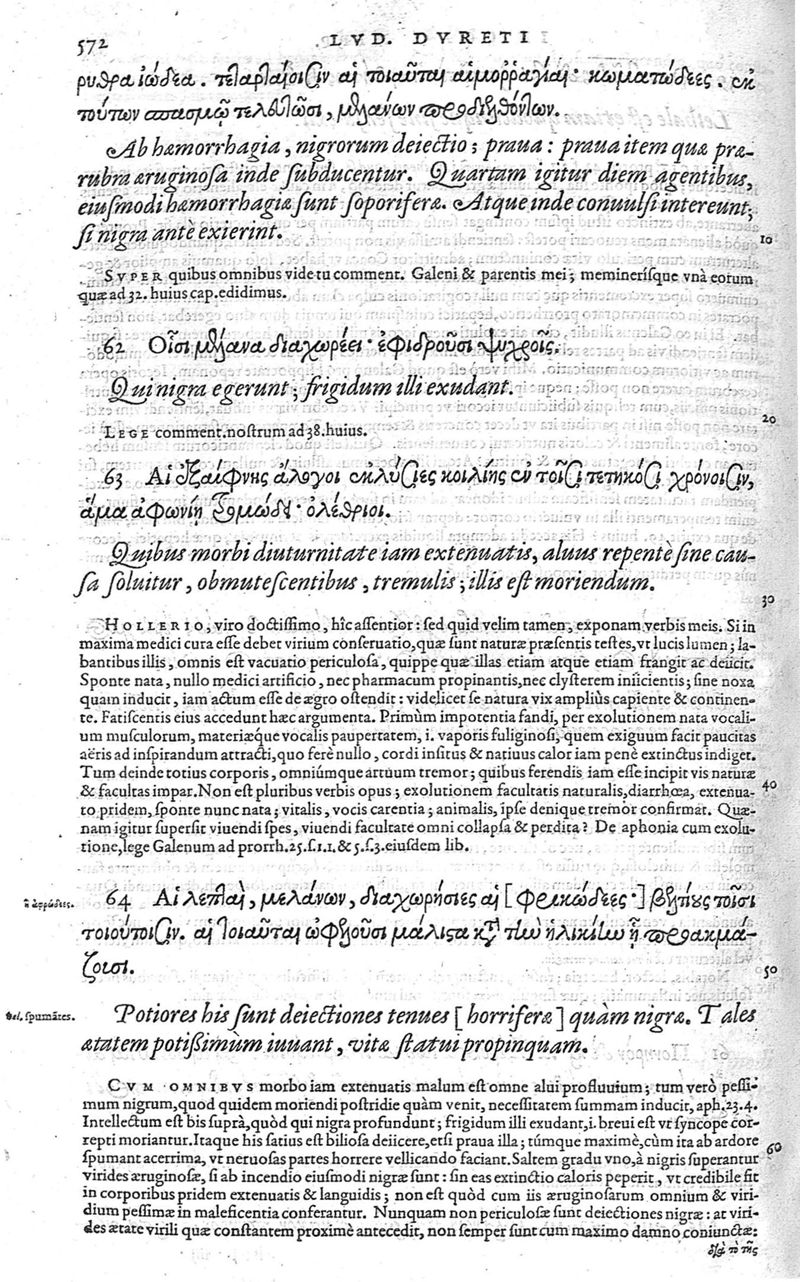 572
LVD. DVRETI
ρυθρα ἰώδεα. τεταρταίοισιν αἱ τοιαῦται αἱμοῤῥαγίαι· κωματώδεες. ἐκ
τούτων σπασμῷ τελευτῶσι, μελάνων προδιελθόντων.
Ab hæmorrhagia, nigrorum deiectio; praua: praua item quæ præ-
rubra æruginosa inde subducentur. Quartam igitur diem agentibus,
eiusmodi hæmorrhagiæ sunt soporiferæ. Atque inde conuulsi intereunt,
si nigra antè exierint.
10
SVPER quibus omnibus vide tu comment. Galeni & parentis mei; memineriśque vnà eorum
quæ ad 32. huius cap. edidimus.
62 Οἷσι μέλανα διαχωρέει· ἐφιδροῦσι ψυχροῖς.
Qui nigra egerunt; frigidum illi exudant.
20
LEGE comment. nostrum ad 38. huius.
63 Αἱ ἐξαίφνης ἄλογοι ἐκλύσιες κοιλίης ἐν τοῖσι τετηκόσι χρόνοισιν,
ἅμα ἀφωνίῃ τρομώδει· ὀλέθριοι.
Quibus morbi diuturnitate iam extenuatis, aluus repentè sine cau-
sa soluitur, obmutescentibus, tremulis; illis est moriendum.
30
HOLLERIO, viro doctissimo, hîc assentior: sed quid velim tamen, exponam verbis meis. Si in
maxima medici cura esse debet virium conseruatio, quæ sunt naturæ præsentis testes, vt lucis lumen; la-
bantibus illis, omnis est vacuatio periculosa, quippe quæ illas etiam atque etiam frangit ac deiicit.
Sponte nata, nullo medici artificio, nec pharmacum propinantis, nec clysterem iniicientis; sine noxa
quam inducit, iam actum esse de ægro ostendit: videlicet se natura vix ampliùs capiente & continen-
te. Fatiscentis eius accedunt hæc argumenta. Primùm impotentia fandi, per exolutionem nata vocali-
um musculorum, materiæque vocalis paupertatem, i. vaporis fuliginosi, quem exiguum facit paucitas
aëris ad inspirandum attracti, quo ferè nullo, cordi insitus & natiuus calor iam penè extinctus indiget.
Tum deinde totius corporis, omniúmque artuum tremor; quibus ferendis iam esse incipit vis naturæ
& facultas impar. Non est pluribus verbis opus; exolutionem facultatis naturalis, diarrhœa, extenua-
40
to pridem, sponte nunc nata; vitalis, vocis carentia; animalis, ipse denique tremor confirmat. Quæ-
nam igitur supersit viuendi spes, viuendi facultate omni collapsa & perdita? De aphonia cum exolu-
tione, lege Galenum ad prorrh. 25. s. 1. l. & 5. s. 3. eiusdem lib.
64 Αἱ λεπταὶ, μελάνων, διαχωρήσιες αἱ [φρικώδεες·] βελτίους τοῖσι
τοιούτοισιν. αἱ τοιαῦται ὠφελοῦσι μάλιστα κατὰ τὴν ἡλικίην ᾗ προακμά-
ζουσι.
ἢ ἀφρώδεες.
50
Potiores his sunt deiectiones tenues [horriferæ] quàm nigræ. Tales
ætatem potißimùm iuuant, vitæ statui propinquam.
vel, spumātes.
CVM OMNIBVS morbo iam extenuatis malum est omne alui profluuium; tum verò pessi-
mum nigrum, quod quidem moriendi postridie quàm venit, necessitatem summam inducit, aph. 23. 4.
Intellectum est bis suprà, quòd qui nigra profundunt; frigidum illi exudant, i. breui est vt syncope cor-
repti moriantur. Itaque his satius est biliosa deiicere, etsi praua illa; túmque maximè, cùm ita ab ardore
spumant acerrima, vt neruosas partes horrere vellicando faciant. Saltem gradu vno, à nigris superantur
60
virides æruginosæ, si ab incendio eiusmodi nigræ sunt: sin eas extinctio caloris peperit, vt credibile fit
in corporibus pridem extenuatis & languidis; non est quòd cum iis æruginosarum omnium & viri-
dium pessimæ in maleficentia conferantur. Nunquam non periculosæ sunt deiectiones nigræ: at viri-
des ætate virili quæ constantem proximè antecedit, non semper sunt cum maximo damno coniunctæ:
διὰ τὸ τῆς